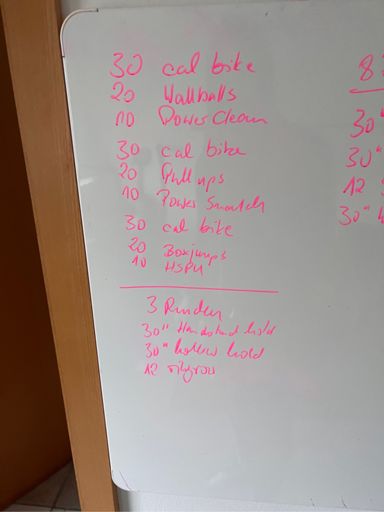 30 cal bike
20 Wallballs
10 Power Clean
30 cal bike
20 Pull ups
10 Power Snatch
30 cal bike
20 Boxjumps
10 HSPU
3 Runden
30" Handstand hold
30" hollow hold
12
8
30"
30"
12
30"